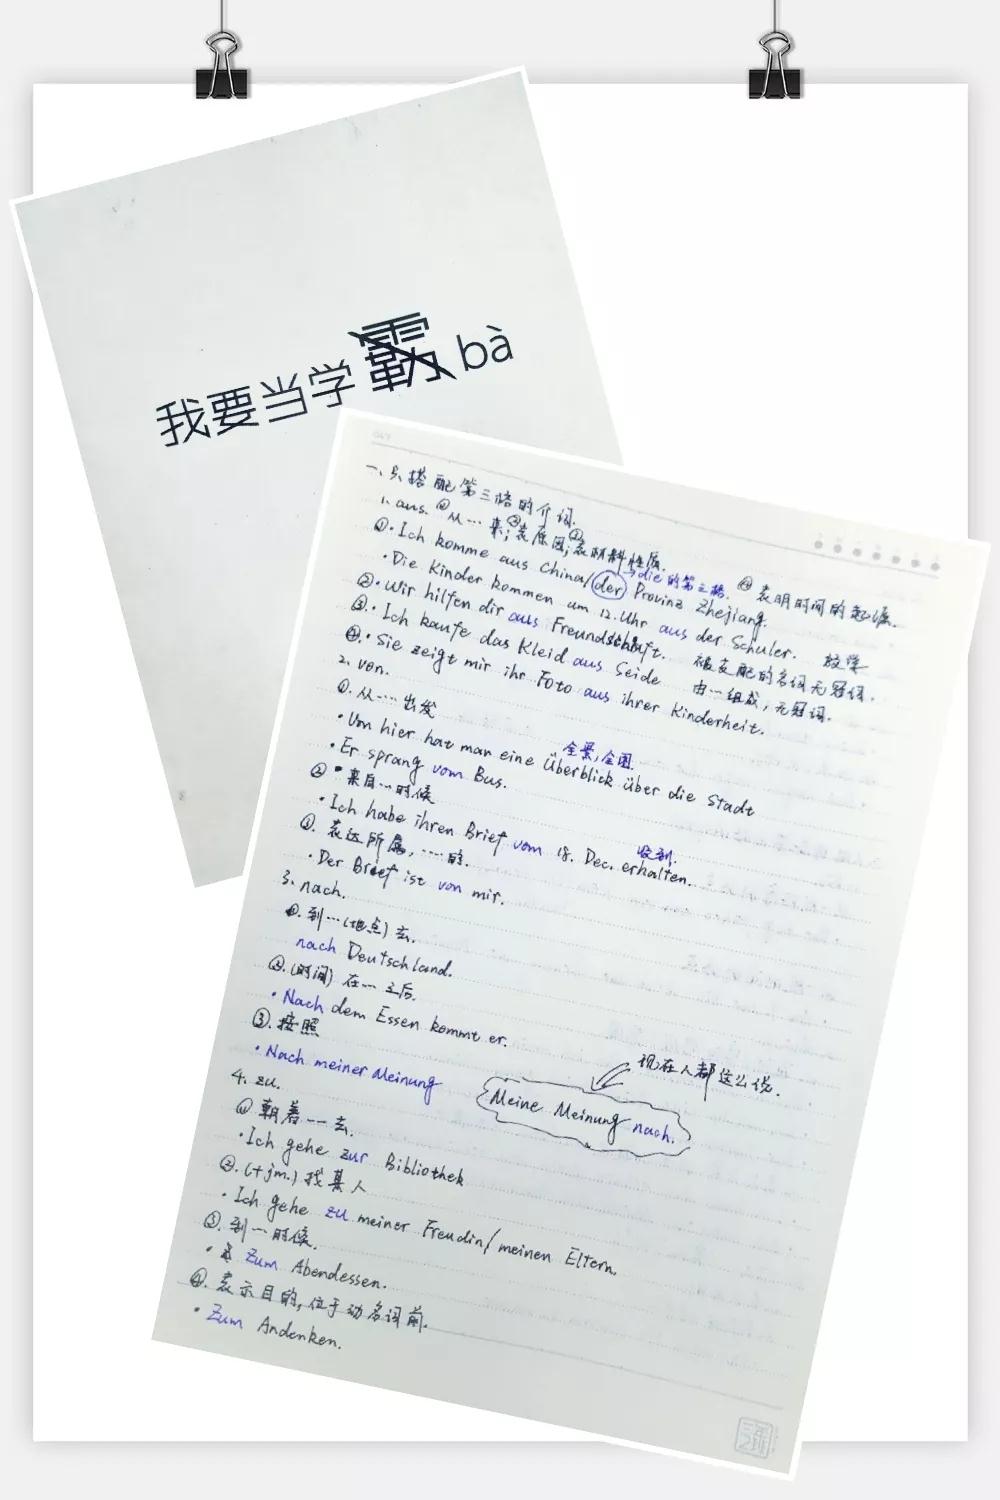 我要当学霸bà
一、只搭配第三格的介词.
1. aus. ①从…来; ②表原因; ③表材料性质. ④表明时间的起源.
→die的第三格.
①·Ich komme aus China/der Provinz Zhejiang.
·Die Kinder kommen um 12.Uhr aus der Schuler. 放学
②·Wir hilfen dir aus Freundschaft. 被支配的名词无冠词.
③·Ich kaufe das Kleid aus Seide 由一组成, 无冠词.
④·Sie zeigt mir ihr Foto aus ihrer Kinderheit.
2. von.
①. 从……出发
全景, 全图.
·Von hier hat man eine Überblick über die Stadt
·Er sprang vom Bus.
② 来自…时候
收到.
·Ich habe ihren Brief vom 18. Dec. erhalten.
③. 表达所属, ……的.
·Der Brief ist von mir.
3. nach.
①. 到…(地点)去.
nach Deutschland.
②.(时间) 在一之后.
·Nach dem Essen kommt er.
③. 按照
·Nach meiner Meinung
现在人都这么说.
Meine Meinung nach.
4. zu.
① 朝着一去.
·Ich gehe zur Bibliothek
②. (+jm.) 找某人
·Ich gehe zu meiner Freudin/meinen Eltern.
③. 到一时候.
· Zum Abendessen.
④. 表示目的, 位于动名词前.
·Zum Andenken.